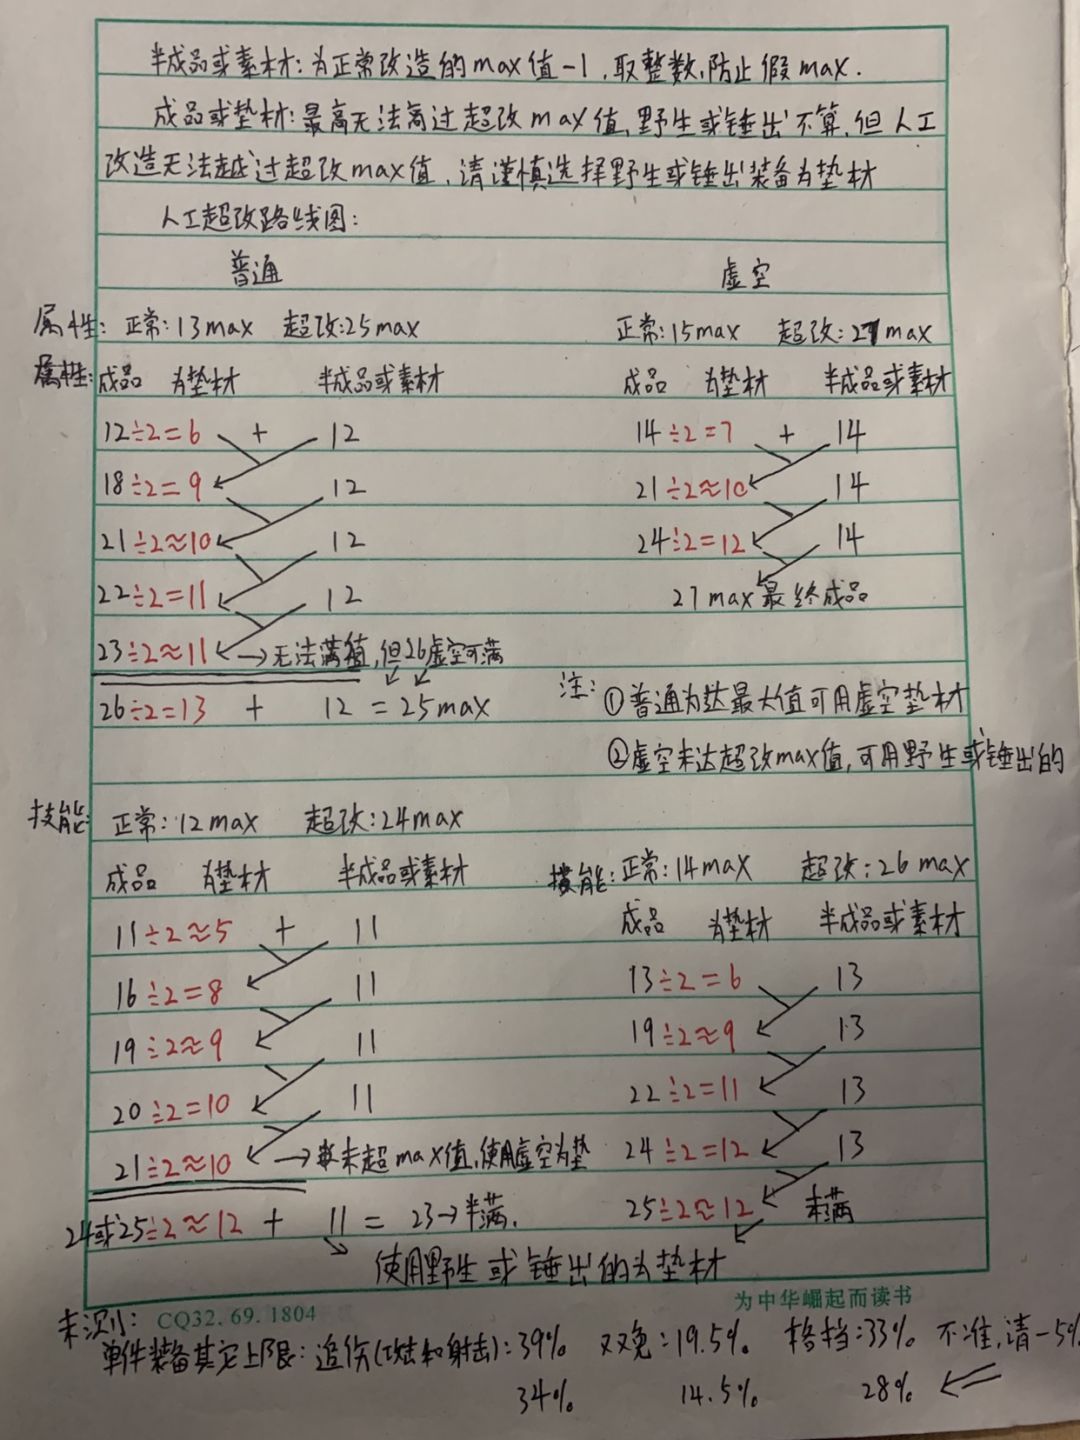 半成品或素材:为正常改造的max值-1,取整数,防止假max.
成品或垫材:最高无法高过超改max值,野生或锤出不算,但人工
改造无法越过超改max值,请谨慎选择野生或锤出装备为垫材
人工超改路线图:
普通 虚空
属性: 正常:13max 超改:25max 正常:15max 超改:27max
属性:成品 为垫材 半成品或素材 成品 为垫材 半成品或素材
12÷2=6 + 12 14÷2=7 + 14
18÷2=9 12 21÷2≈10 14
21÷2≈10 12 24÷2=12 14
22÷2=11 12 27max最终成品
23÷2≈11 →无法满值,但26虚空可满
26÷2=13 + 12 = 25max 注:①普通为达最大值可用虚空垫材
②虚空未达超改max值,可用野生或锤出的
技能: 正常:12max 超改:24max
成品 为垫材 半成品或素材 技能:正常:14max 超改:26max
11÷2≈5 + 11 成品 为垫材 半成品或素材
16÷2=8 11 13÷2=6 13
19÷2≈9 11 19÷2≈9 13
20÷2=10 11 22÷2=11 13
21÷2≈10 → 未超max值,使用虚空为垫 24÷2=12 13
24或25÷2≈12 + 11 = 23→ 满. 25÷2≈12 未满
使用野生或锤出的为垫材
为中华崛起而读书
未测: CQ32.69.1804
单件装备其它上限:追伤( 和射击):39% 双免:19.5% 格挡:33% 不准,请-5%
34% 14.5% 28%